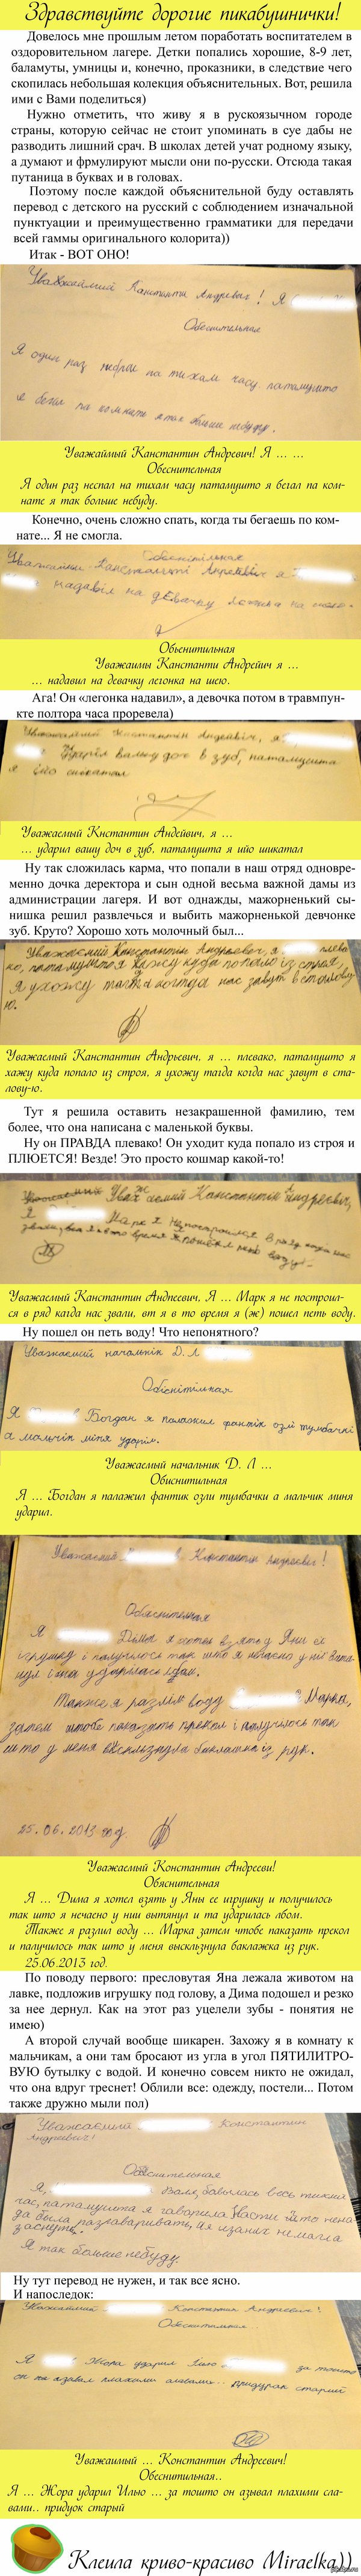 Здравствуйте дорогие пикабушнички!
Довелось мне прошлым летом поработать воспитателем в
оздоровительном лагере. Детки попались хорошие, 8-9 лет,
баламуты, умницы и, конечно, проказники, в следствие чего
скопилась небольшая колекция объяснительных. Вот, решила
ими с Вами поделиться)
Нужно отметить, что живу я в рускоязычном городе
страны, которую сейчас не стоит упоминать в суе дабы не
разводить лишний срач. В школах детей учат родному языку,
а думают и фрмулируют мысли они по-русски. Отсюда такая
путаница в буквах и в головах.
Поэтому после каждой объяснительной буду оставлять
перевод с детского на русский с соблюдением изначальной
пунктуации и преимущественно грамматики для передачи
всей гаммы оригинального колорита))
Итак - ВОТ ОНО!
Уважаймий Канстанти Андревич! Я
Обеснительная
Я один раз неспал на тихам часу патамушто
я бегал па комнате я так больше небуду.
Уважаймый Канстантин Андревич! Я ... ...
Обеснительная
Я один раз неспал на тихам часу патамушто я бегал па ком-
нате я так больше небуду.
Конечно, очень сложно спать, когда ты бегаешь по ком-
нате... Я не смогла.
надавіл на дєвачку
Обьенитильная
Уважаимы Канстанти Андрейич я ...
... надавил на девачку легонка на шею.
Ага! Он «легонка надавил», а девочка потом в травмпун-
кте полтора часа проревела)
ударіл вашу доч в зуб, патамушта
я ійо шикатал
Уважаемый Кнстантин Андейвич, я ...
... ударил вашу доч в зуб, патамушта я ийо шикатал
Ну так сложилась карма, что попали в наш отряд одновре-
менно дочка деректора и сын одной весьма важной дамы из
администрации лагеря. И вот однажды, мажорненький сы-
нишка решил развлечься и выбить мажорненькой девчонке
зуб. Круто? Хорошо хоть молочный был...
Уважаемий Канстантін Андрьевич, я плева-
ко, патамушто я хажу куда попало із строя,
Я ухожу тагда когда нас завут в сталову-
ю.
Уважаемый Канстантин Андрьевич, я ... плевако, патамушто я
хажу куда попало из строя, я ухожу тагда когда нас завут в ста-
лову-ю.
Тут я решила оставить незакрашенной фамилию, тем
более, что она написана с маленькой буквы.
Ну он ПРАВДА плевако! Он уходит куда попало из строя и
ПЛЮЕТСЯ! Везде! Это просто кошмар какой-то!
Я Марк я непостроился в ряд
Уважаемый Канстантин Андпеевич, Я ... Марк я не построил-
ся в ряд катда нас звали, вт я в то время я (ж) пошел петь воду.
Ну пошел он петь воду! Что непонятного?
Уважаемий начальнік Д. Л
Обіснітільная
Я Богдан я палажил фантік озлі тумбачкі
а мальчік міня ударіл.
Уважаемый начальник Д. Л ...
Обиснитильная
Я ... Богдан я палажил фантик озли тумбачки а мальчик миня
ударил.
Уважаемий Канстантин Андреевіч!
Обяснительная
Я Діма я хотел взять у Яни ее
ігрушку і получілось так што я нечаено у ниї витя-
нул і она ударілась лбом.
Также я разліл воду Марка,
затем штобе показать прекол і получілось так
што у меня висклызнула баклашка із рук.
25.06.2013 год.
Уважаемый Константин Андрееви!
Обяснительная
Я ... Дима я хотел взять у Яны ее игрушку и получилось
так што я нечаено у нии вытянул и та ударилась лбом.
Также я разлил воду ... Марка затем чтобе паказать прекол
и палучилось так што у меня выскльзнула баклажка из рук.
25.06.2013 год.
По поводу первого: пресловутая Яна лежала животом на
лавке, подложив игрушку под голову, а Дима подошел и резко
за нее дернул. Как на этот раз уцелели зубы - понятия не
имею)
А второй случай вообще шикарен. Захожу я в комнату к
мальчикам, а они там бросают из угла в угол ПЯТИЛИТРО-
ВУЮ бутылку с водой. И конечно совсем никто не ожидал,
что она вдруг треснет! Облили все: одежду, постели... Потом
также дружно мыли пол)
Уважаемий Константин
Андреевич!
Обяснительная
Я, Валя, бавылась весь тихий
час, патамушта я гаворила Насти што нена-
да была разгаваривать, а я изаних немагла
заснуть.
Я так больше небуду.
Ну тут перевод не нужен, и так все ясно.
И напоследок:
Уважаимий Константин Андреевич!
Обеснитильная..
Я Жора ударил Илью за тошто
он азывал плахими славами.. придурак старий
Уважаимый ... Константин Андреевич!
Обеснитильная..
Я ... Жора ударил Илью ... за тошто он азывал плахими сла-
вами.. придуок старый
Клеила криво-красиво Miraelka))